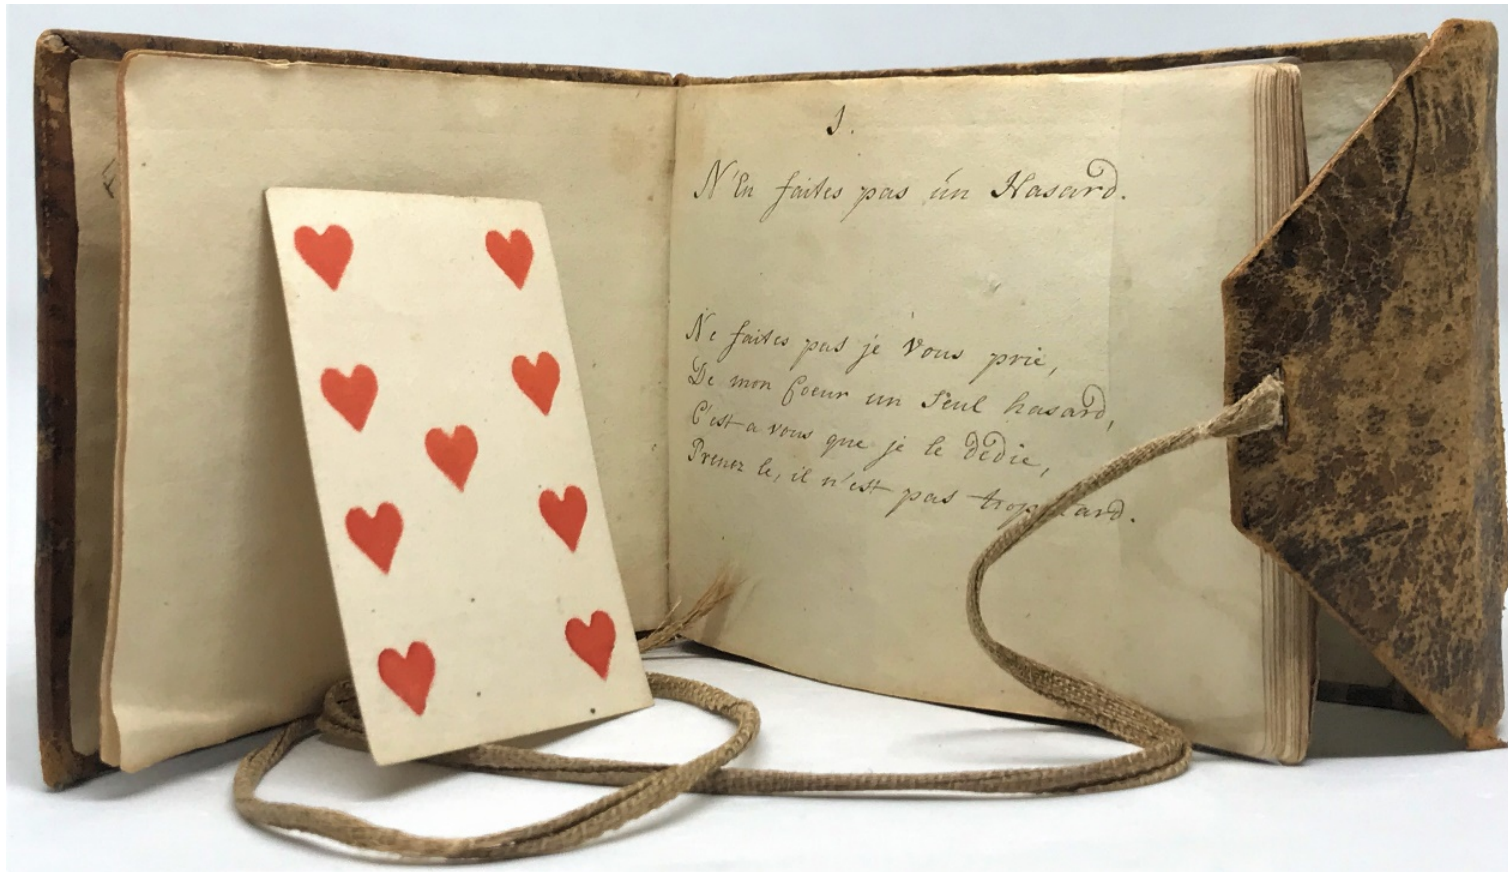 1.
N'En faites pas un Hasard.
Ne faites pas je vous prie,
De mon Coeur un Seul hasard,
C'est a vous que je le dédie,
Prenez le, il n'est pas trop tard.